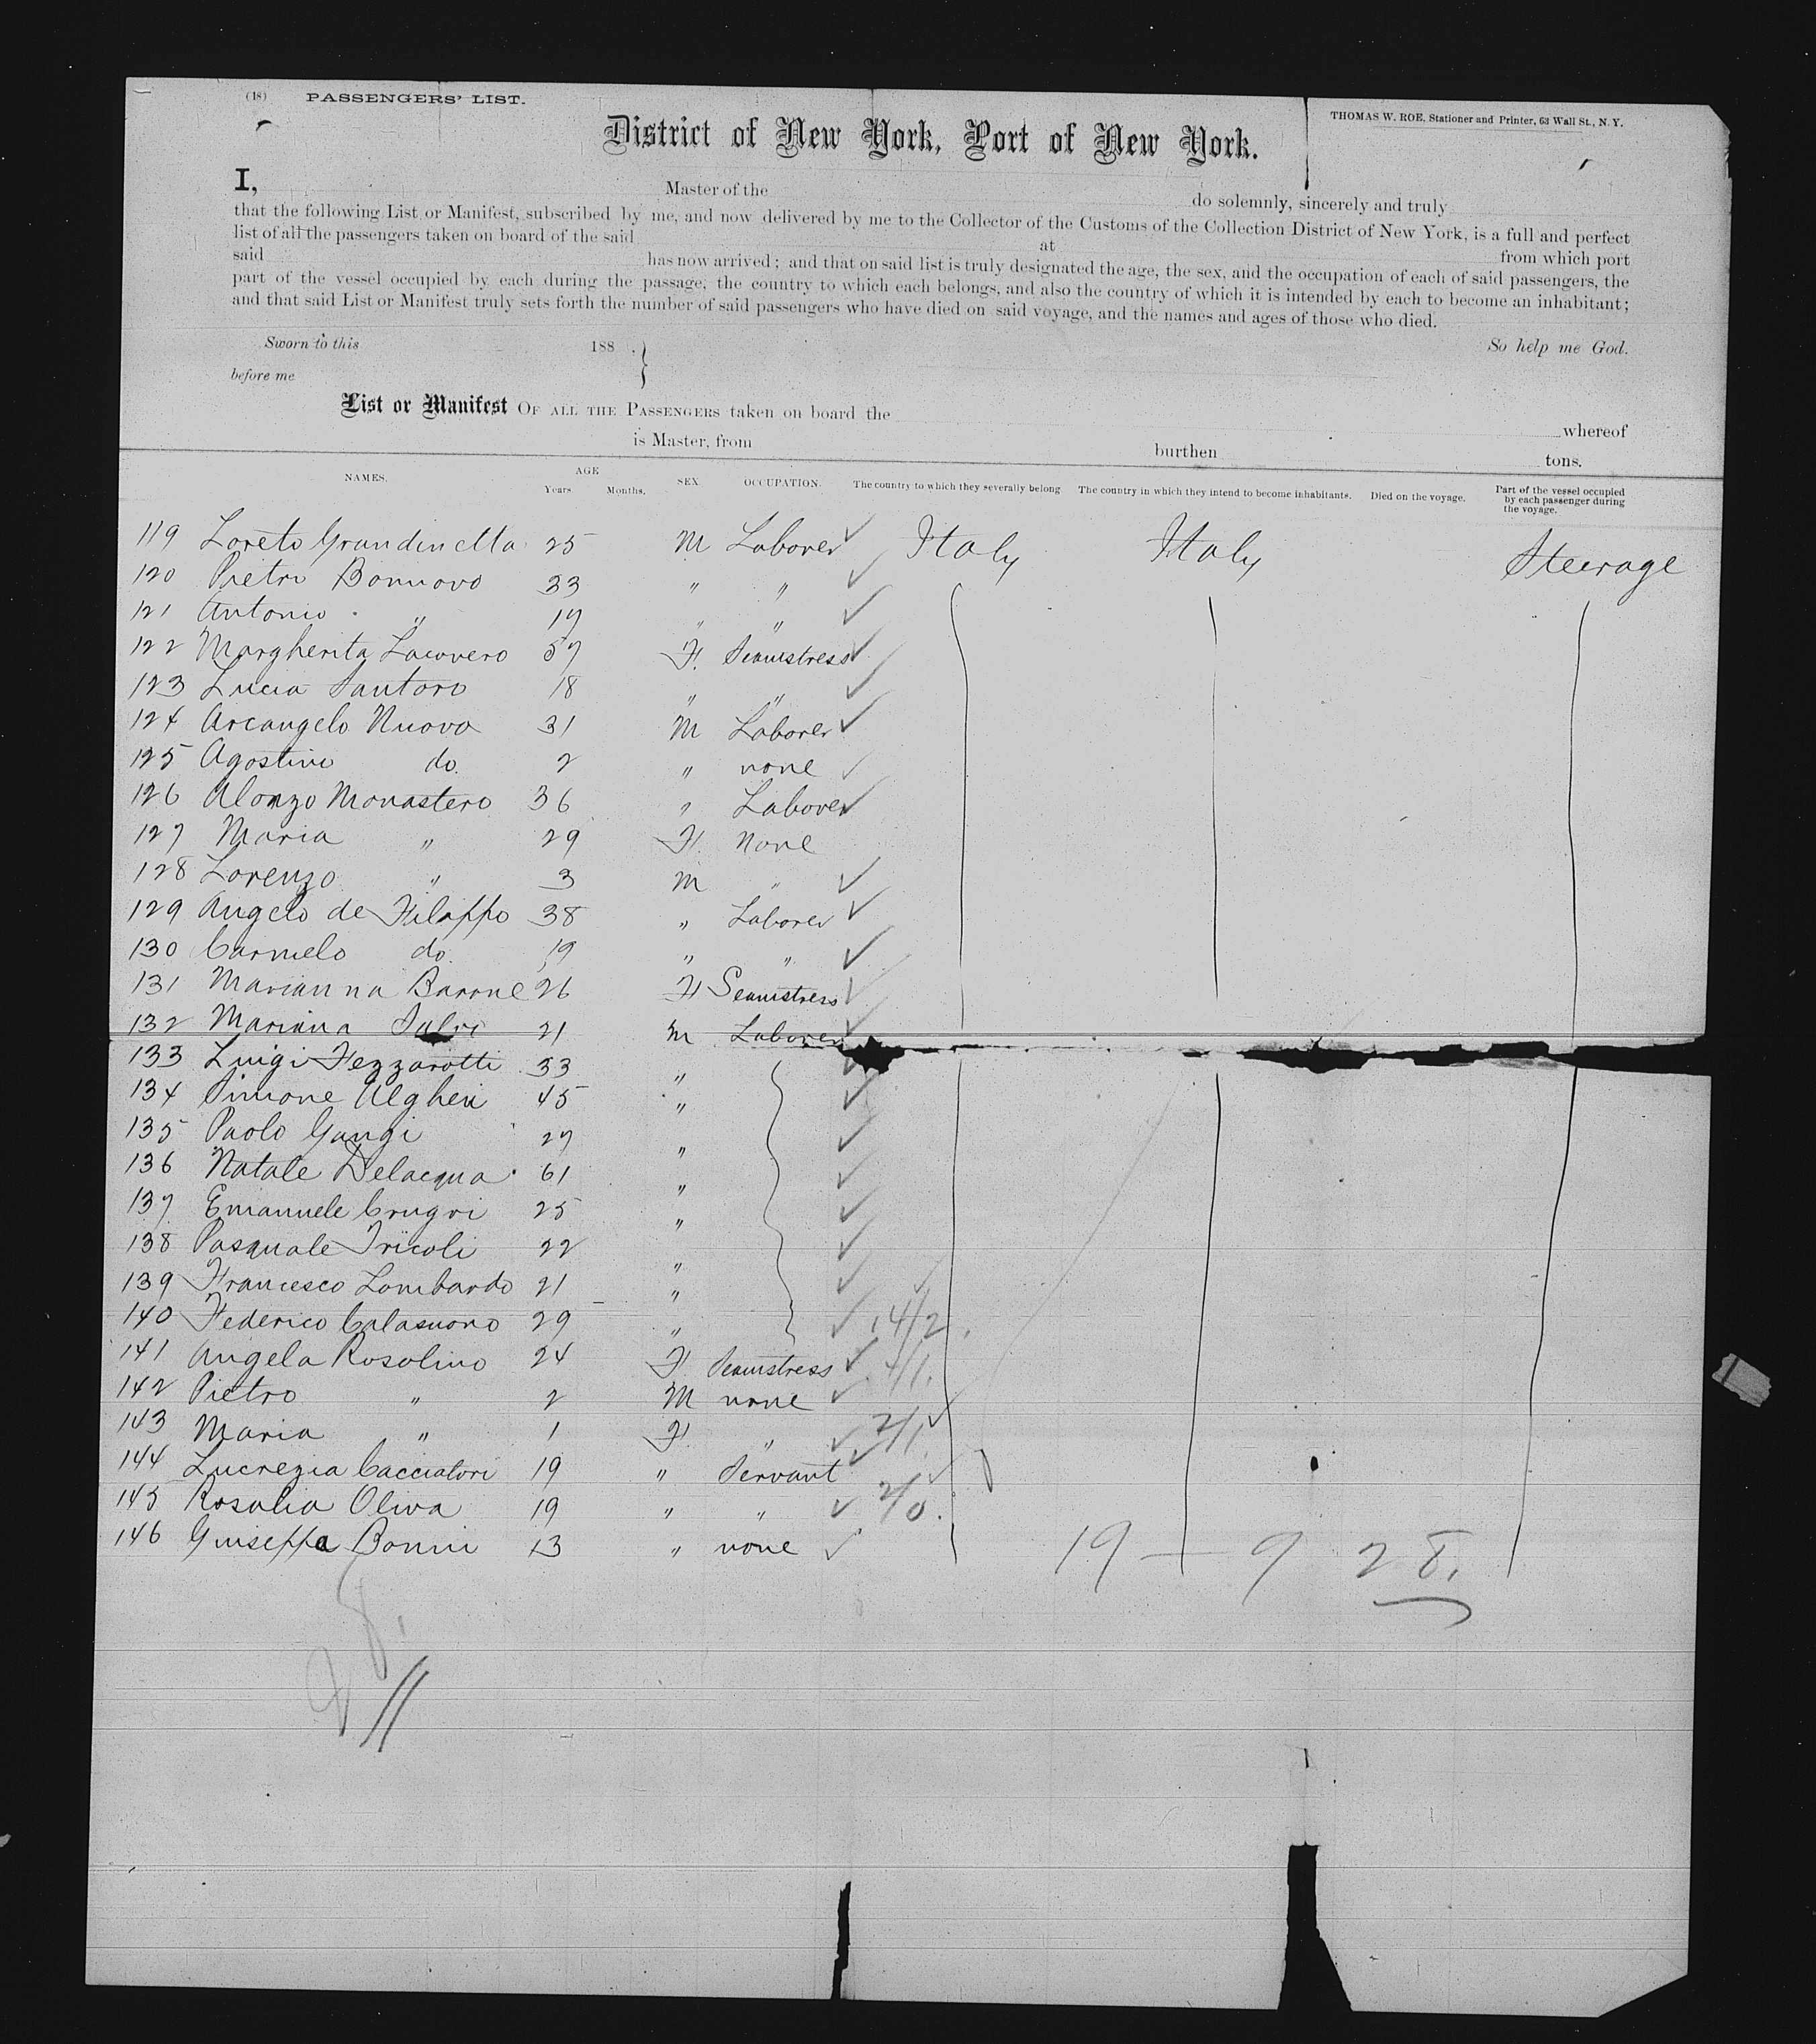 (18) PASSENGERS' LIST.
THOMAS W. ROE, Stationer and Printer, 63 Wall St., N.Y.
District of New York, Port of New York.
I, Master of the do solemnly, sincerely and truly
that the following List or Manifest, subscribed by me, and now delivered by me to the Collector of the Customs of the Collection District of New York, is a full and perfect
list of all the passengers taken on board of the said at from which port
said has now arrived; and that on said list is truly designated the age, the sex, and the occupation of each of said passengers, the
part of the vessel occupied by each during the passage, the country to which each belongs, and also the country of which it is intended by each to become an inhabitant;
and that said List or Manifest truly sets forth the number of said passengers who have died on said voyage, and the names and ages of those who died.
Sworn to this 188 . } So help me God.
before me
List or Manifest OF ALL THE PASSENGERS taken on board the whereof
is Master, from burthen tons.
NAMES. AGE Years Months. SEX. OCCUPATION. The country to which they severally belong The country in which they intend to become inhabitants. Died on the voyage. Part of the vessel occupied by each passenger during the voyage.
119 Loreto Grandinetta 25 M Laborer Italy Italy Steerage
120 Pietro Bonnovo 33 " "
121 Antonio " 19 " "
122 Margherita Lacovero 57 F. Seamstress
123 Lucia Santoro 18 " "
124 Arcangelo Nuovo 31 M Laborer
125 Agostino do. 2 " none
126 Alonzo Monastero 36 " Laborer
127 Maria " 29 F. None
128 Lorenzo " 3 M "
129 Angelo de Filippo 38 " Laborer
130 Carmelo do. 19 " "
131 Marianna Barone 26 F Seamstress
132 Mariana Salvo 21 M Laborer
133 Luigi Fezzarotti 33 "
134 Simone Algheri 45 "
135 Paolo Gangi 27 "
136 Natale Delacqua 61 "
137 Emanuele Crugri 25 "
138 Pasquale Tricoli 22 "
139 Francesco Lombardo 21 "
140 Federico Calasuono 29 " 4/2.
141 Angela Rosolino 24 F. Seamstress 4/1.
142 Pietro " 2 M none
143 Maria " 1 F. " 2/1.
144 Lucrezia Cacciatori 19 " Servant
145 Rosalia Oliva 19 " " 2/0.
146 Guiseppa Bonni 13 " none
19 — 9 28.
28.